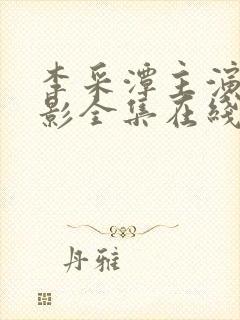 李采潭主演
影全集在线
丹雅